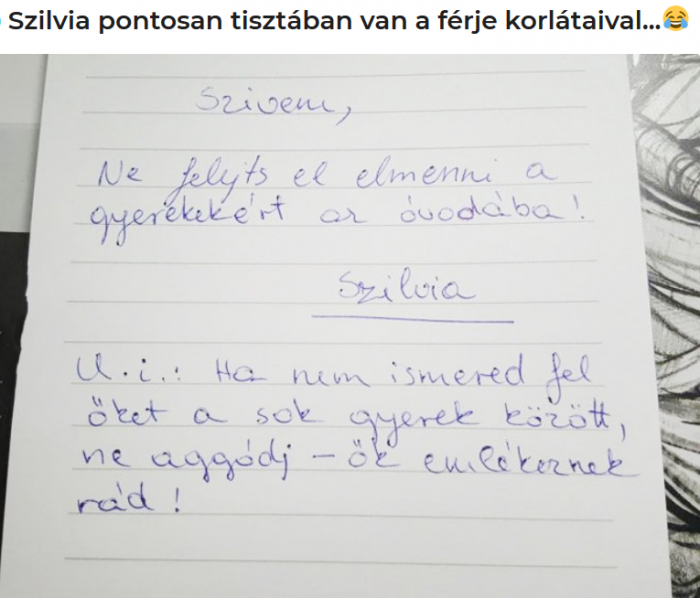 Szilvia pontosan tisztában van a férje korlátaival...😂
Szivem,
Ne felejts el elmenni a
gyerekekért az óvodába!
Szilvia
U.i.: Ha nem ismered fel
őket a sok gyerek között,
ne aggódj – ők emlékeznek
rád!